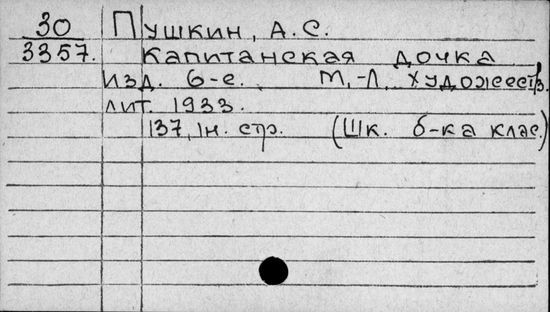 30 Пушкин, А.С.
3357. Капитанская дочка
Изд. 6-е. М.-Л. Художеств.
лит. 1933.
137, 1н. стр. (Шк. б-ка клас.)